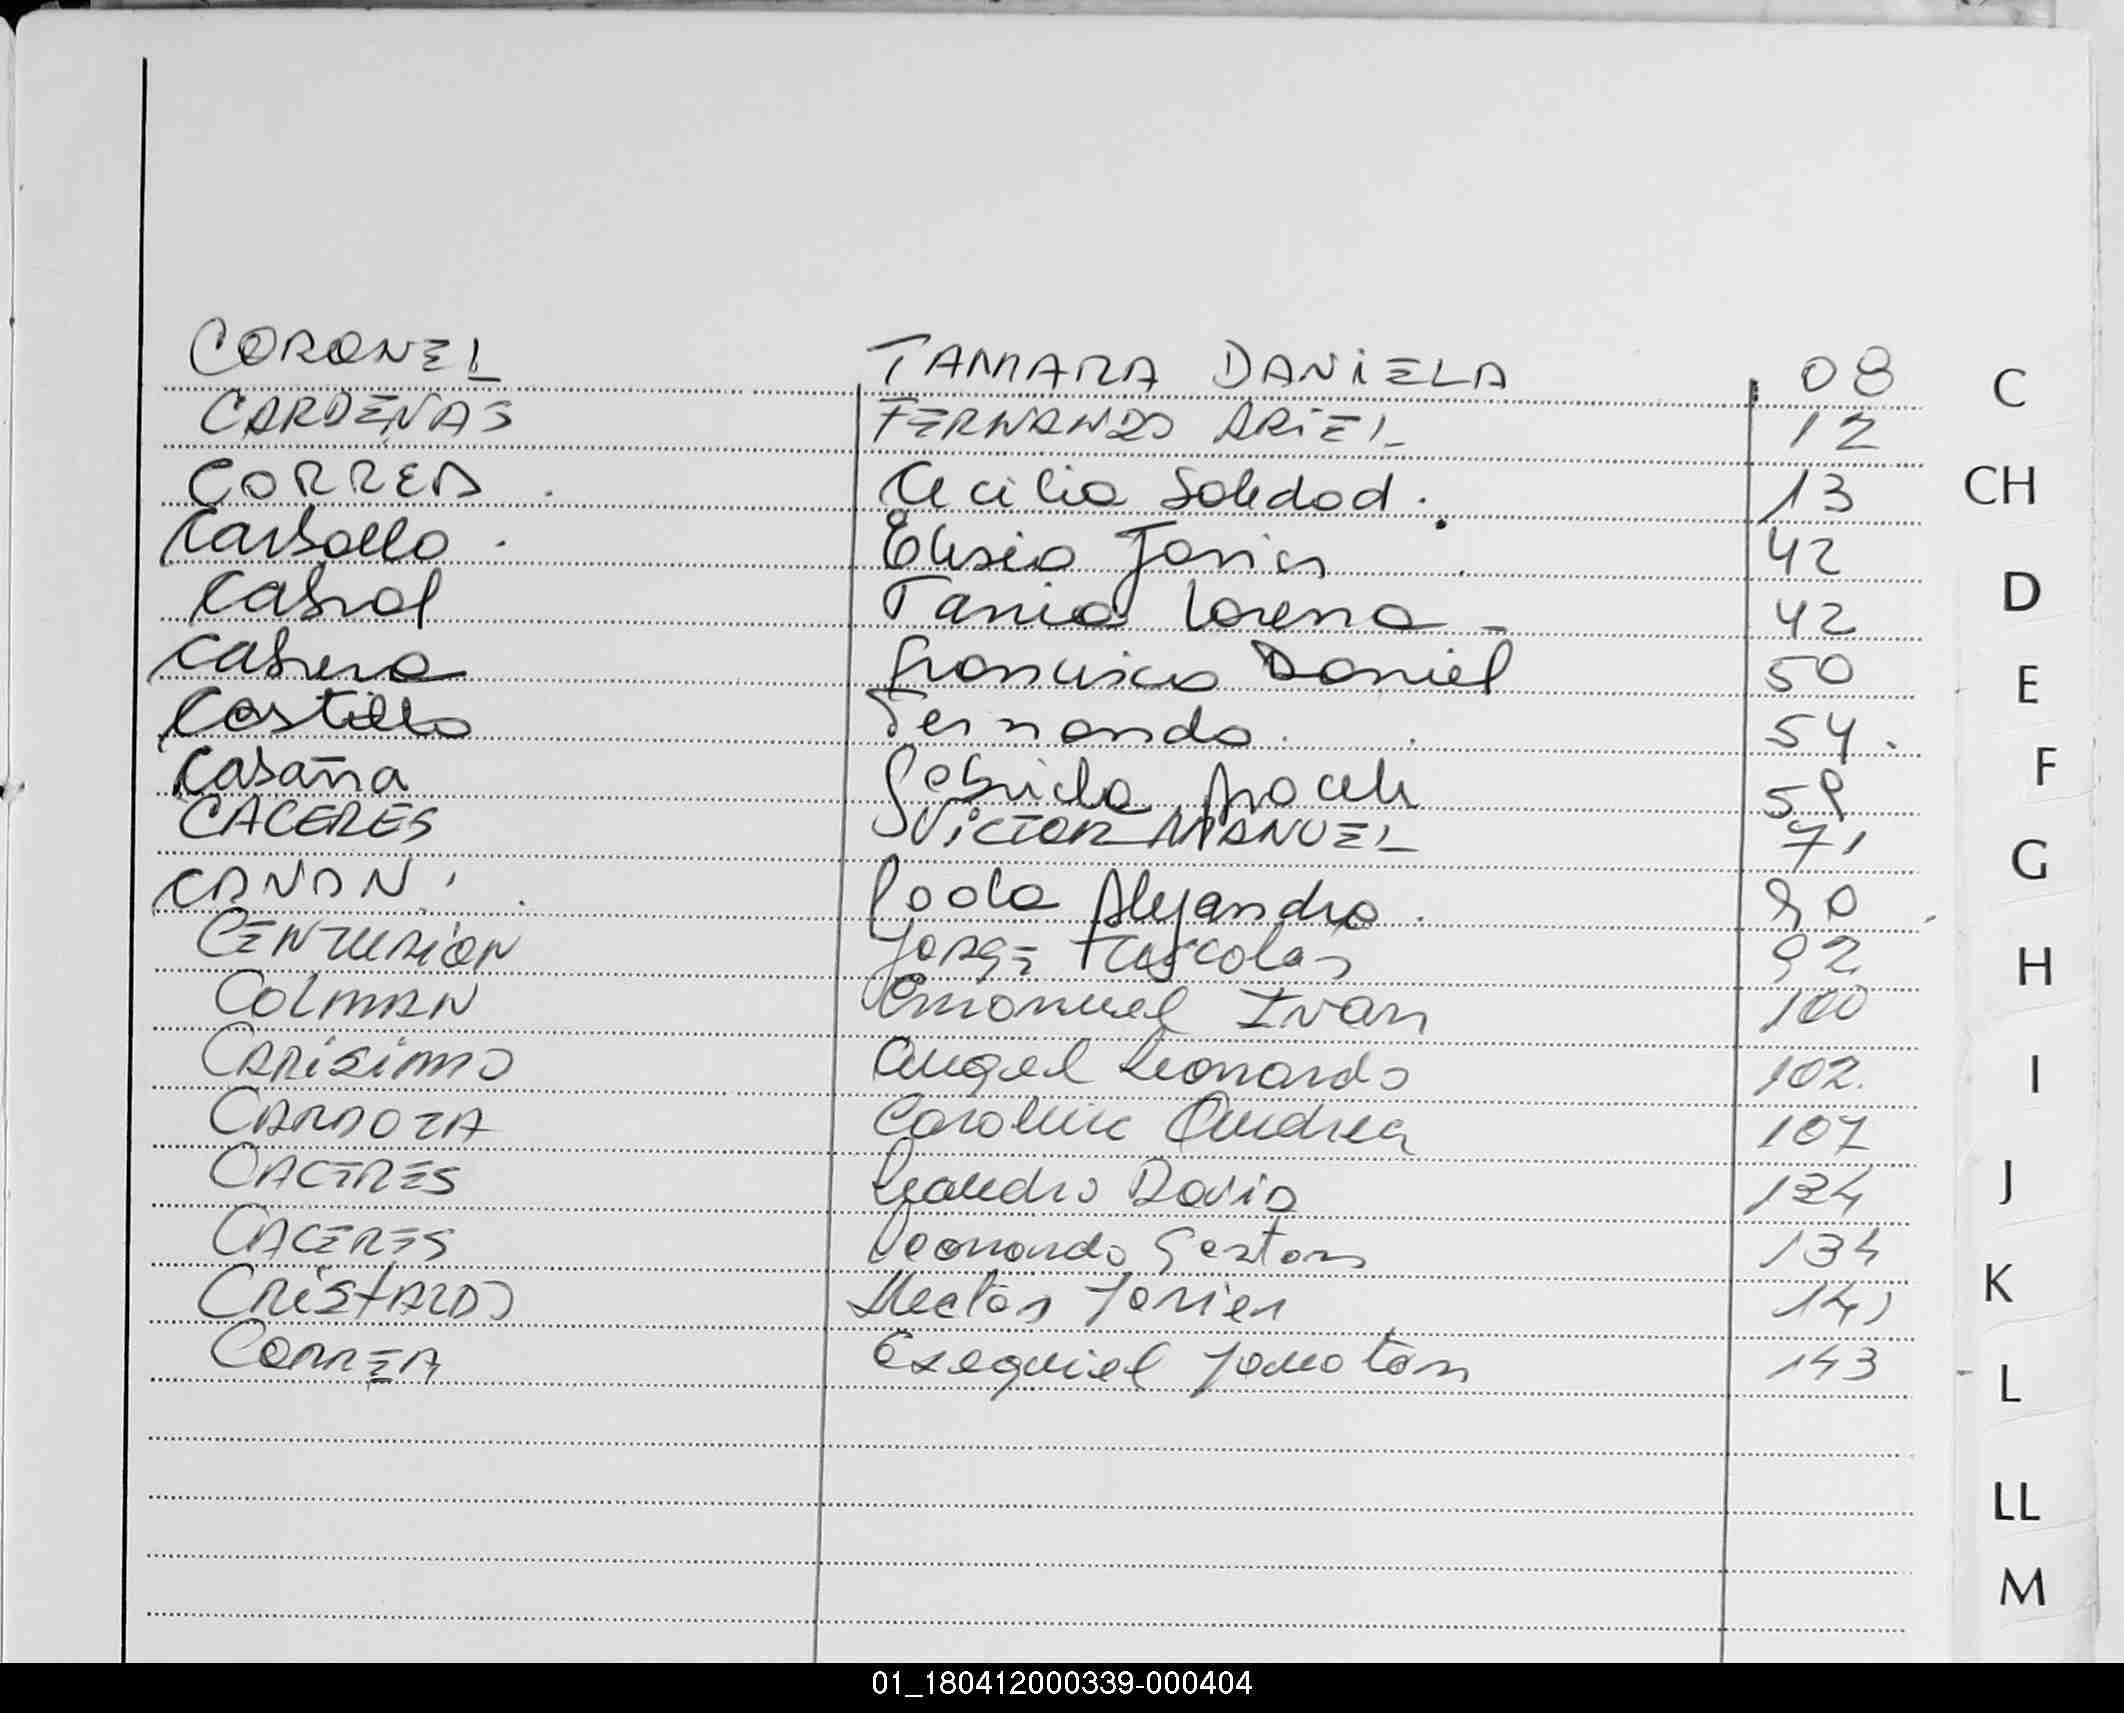 CORONEL TAMARA DANIELA 08
CARDENAS FERNANDO ARIEL 12
CORREA Cecilia Soledad. 13
Carballo Eliseo Javier 42
Cabral Tania Lorena 42
Cabrera Francisco Daniel 50
Castillo Fernando. 54
Casaña Gabriela Araceli
CACERES VICTOR MANUEL 71
CANAN Paola Alejandra.
CENTURION JORGE 92
COLMAN Emanuel Ivan 100
CARISIMO Angel Leonardo 102
CARDOZA Andrea 107
CACERES Leandro David 124
CACERES Leonardo Gaston 134
CRISTALDO Hector Javier
CORREA Ezequiel Jonatan 143
C
CH
D
E
F
G
H
I
J
K
L
LL
M
01_180412000339-000404